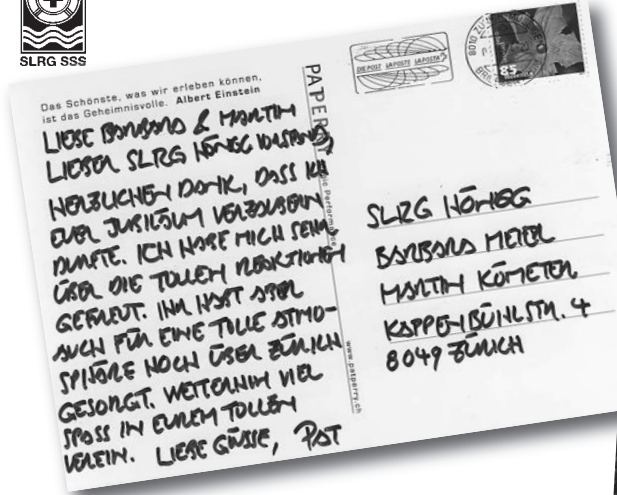 SLRG SSS
Das Schönste, was wir erleben können,
ist das Geheimnisvolle. Albert Einstein
LIEBE BARBARA & MARTIN
LIEBER SLRG HÖNGG VORSTAND,
HERZLICHEN DANK, DASS ICH
EUER JUBILÄUM VERZAUBERN
DURFTE. ICH HABE MICH SEHR
ÜBER DIE TOLLEN REAKTIONEN
GEFREUT. IHR HABT ABER
AUCH FÜR EINE TOLLE ATMO-
SPHÄRE HOCH ÜBER ZÜRICH
GESORGT. WEITERHIN VIEL
SPASS IN EUREM TOLLEN
VEREIN. LIEBE GRÜSSE, PAT
www.patperry.ch
DIE POST LA POSTE LA POSTA
85
SLRG HÖNGG
BARBARA MEIER
MARTIN KÖMETER
KAPPENBÜHLSTR. 4
8049 ZÜRICH